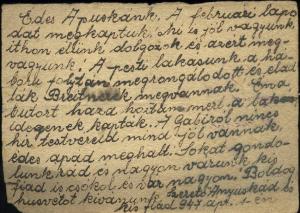 Édes Apuskánk. A februári lapo-
dat megkaptuk. Mi is jól vagyunk
itthon ellünk dolgozok és azért meg-
vagyunk. A pesti lakásunk a há-
ború folytán megrongálodott és elad-
ták Breitnerek megvannak. Én a
butort haza hoztam mert a lakást
idegenek kapták. A Gabiról nincs
hír testvereid mind jól vannak
édes apád meghalt. Sokat gondo-
lunk rád és nagyon várunk kis
fiad is csókol és vár nagyon. Boldog
husvétot kivánunk szerető Anyuskád és
kis fiad 947 ápr. 1-én